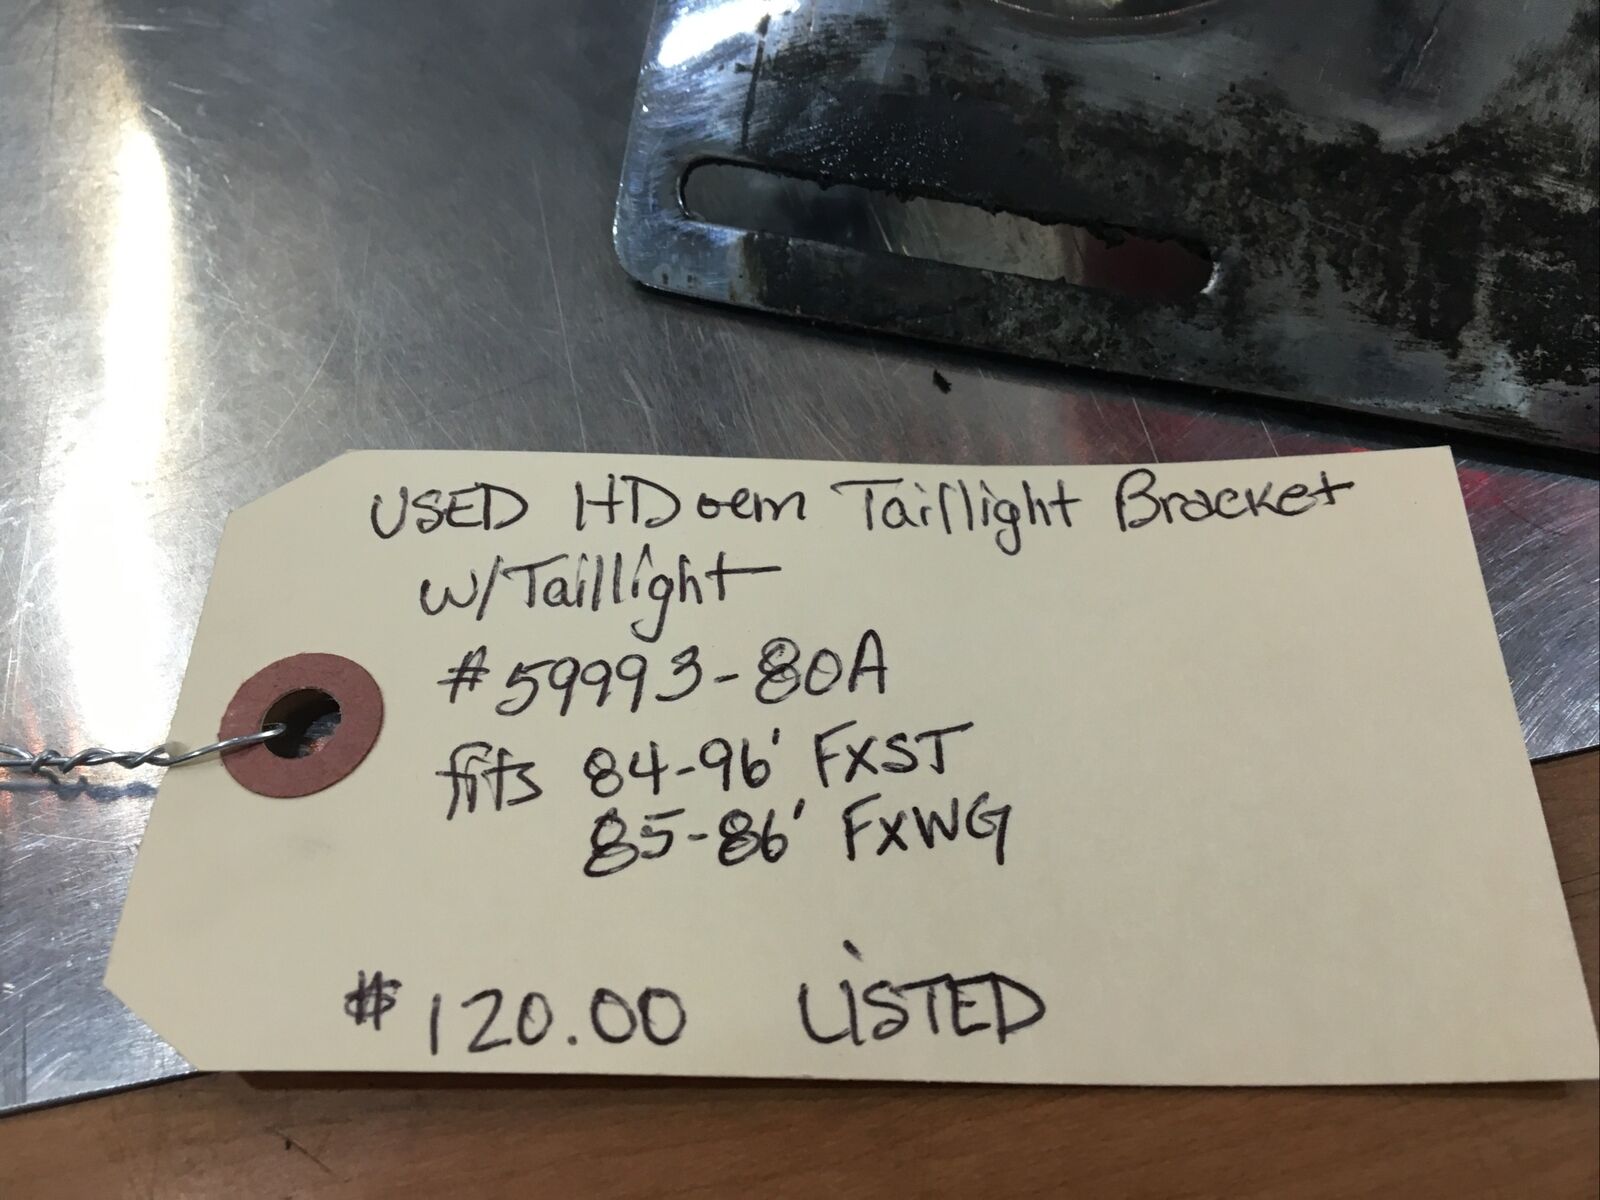 USED HD oem Taillight Bracket
w/Taillight
#59993-80A
fits 84-96' FXST
85-86' FXWG
$120.00 LiSTED